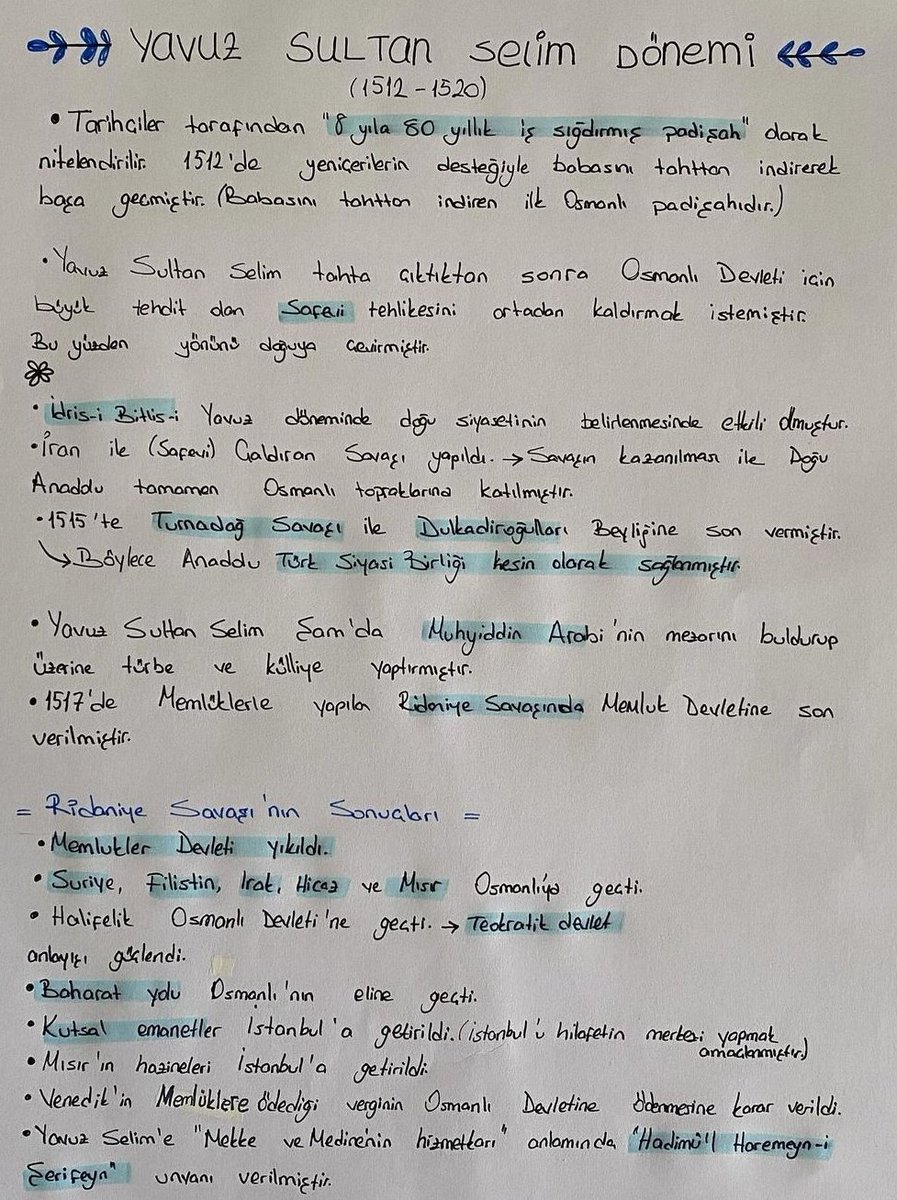 Yavuz Sultan Selim Dönemi
(1512-1520)
• Tarihçiler tarafından "8 yıla 80 yıllık iş sığdırmış padişah" olarak
nitelendirilir. 1512'de yeniçerilerin desteğiyle babasını tahttan indirerek
başa geçmiştir. (Babasını tahttan indiren ilk Osmanlı padişahıdır.)
• Yavuz Sultan Selim tahta çıktıktan sonra Osmanlı Devleti için
büyük tehdit olan Safevi tehlikesini ortadan kaldırmak istemiştir.
Bu yüzden yönünü doğuya çevirmiştir.
• İdris-i Bitlis-i Yavuz döneminde doğu siyasetinin belirlenmesinde etkili olmuştur.
• İran ile (Safevi) Çaldıran Savaşı yapıldı. → Savaşın kazanılması ile Doğu
Anadolu tamamen Osmanlı topraklarına katılmıştır.
• 1515'te Turnadağ Savaşı ile Dulkadiroğulları Beyliğine son vermiştir.
↳ Böylece Anadolu Türk Siyasi Birliği kesin olarak sağlanmıştır.
• Yavuz Sultan Selim Şam'da Muhyiddin Arabi'nin mezarını buldurup
üzerine türbe ve külliye yaptırmıştır.
• 1517'de Memlüklerle yapılan Ridaniye Savaşında Memluk Devletine son
verilmiştir.
= Ridaniye Savaşı'nın Sonuçları =
• Memlukler Devleti yıkıldı.
• Suriye, Filistin, Irak, Hicaz ve Mısır Osmanlı'ya geçti.
• Halifelik Osmanlı Devleti'ne geçti. → Teokratik devlet
anlayışı güçlendi.
• Baharat yolu Osmanlı'nın eline geçti.
• Kutsal emanetler İstanbul'a getirildi. (İstanbul'u hilafetin merkezi yapmak
amaçlanmıştır)
• Mısır'ın hazineleri İstanbul'a getirildi.
• Venedik'in Memlüklere ödediği verginin Osmanlı Devletine ödenmesine karar verildi.
• Yavuz Selim'e "Mekke ve Medine'nin hizmetkarı" anlamında "Hadimü'l Haremeyn-i
Şerifeyn" unvanı verilmiştir.